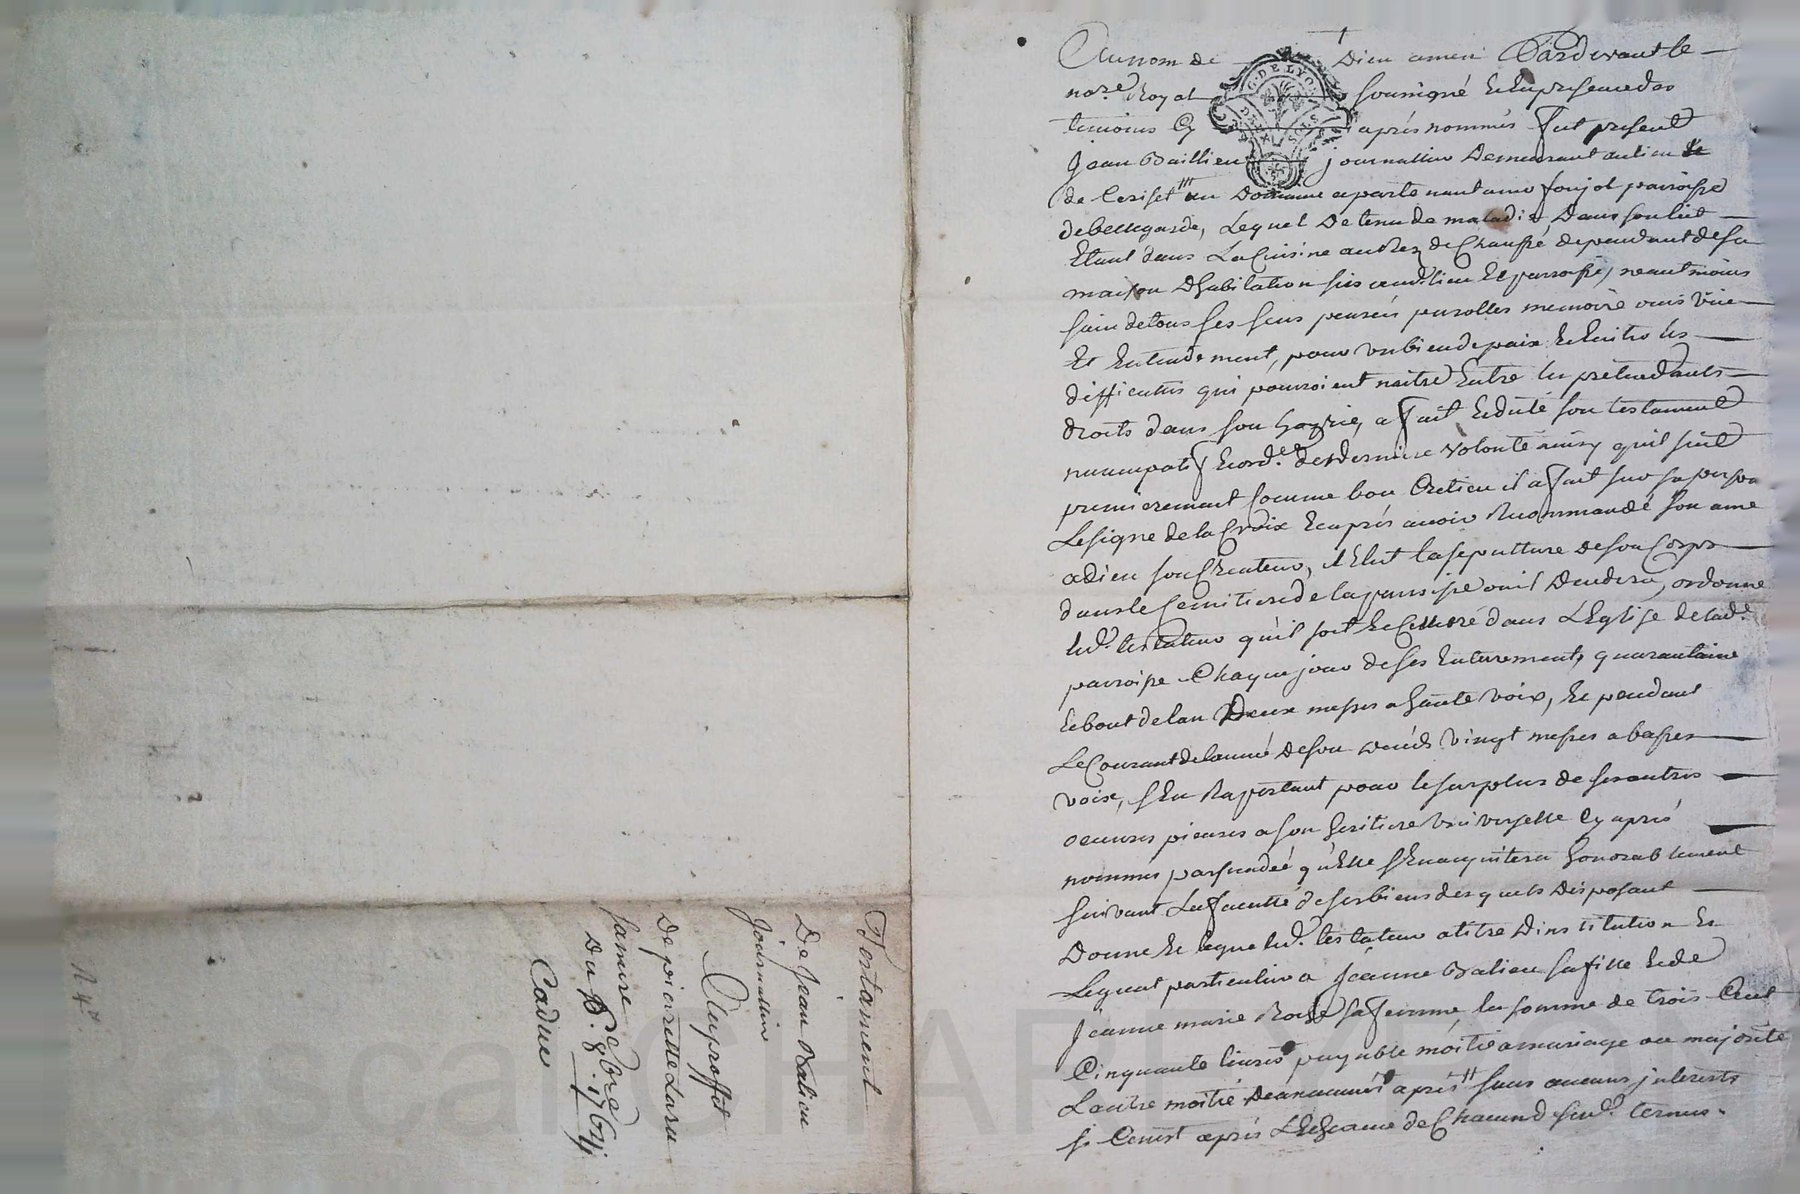 Au nom de Dieu amen Pardevant le
no.re Royal soussigné Et En presence des
temoins Cy aprés nommés fut present
Jean Baillieu journallier Demeurant au lieu
de Ceriset au Domaine apartenant a mr fonjol parroisse
debellegarde, Lequel Detenu de maladie Dans son lict
Etant dans La Cuisine au Rez de Chaussé dependant de sa
maison Dhabitation sis aud. lieu Et parroisse, neantmoins
sain de tous ses sens pensées parolles memoire ouis Vüe
Et Entendement, pour un bien de paix Et Eviter les
difficultés qui pourroient naitre Entre les pretendants
droits dans son hoyrie, a fait Et dicté son testament
nuncupatif Et ord.ce de derniere volonté ainsy quil suit
premierement Comme bon Cretien il a fait sur sa person
Le signe de la Croix Et aprés avoir Recommandé son ame
a dieu son Createur, il Elut la sepulture de son Corps
dans le Cemitiere de la parroisse ou il Decedera, ordonne
led. testateur qu'il soit Celebré dans LEglise de lad.
parroisse Chaque jour de ses Enterrement, quarantaine
Et bout de lan Deux messes a haute voix, Et pendant
Le Courant de lanné de son decéds Vingt messes a basses
voix, s'En Raportant pour le surplus de ses autres
oeuvres pieuses a son heritiere Universelle Cy aprés
nommés persuadeé qu'Elle s'En acquitera honorablement
suivant La faculté de ses biens desquels Disposant
Donne Et legue led. testateur a titre Dinstitution Et
Legat particulier a Jeanne Balieu sa fille Et de
Jeanne marie sa femme, la somme de trois Cent
Cinquante livres payable moitié a mariage ou majorité
Lautre moitié Deux années aprés sans aucuns jnterests
si Cenest aprés LEcheance de Chacund sud. termes.
Testament
De Jean Balieu
Journallier
Auproffit
De pierrette Lasa
femme
Du 8. 1764
Caduc